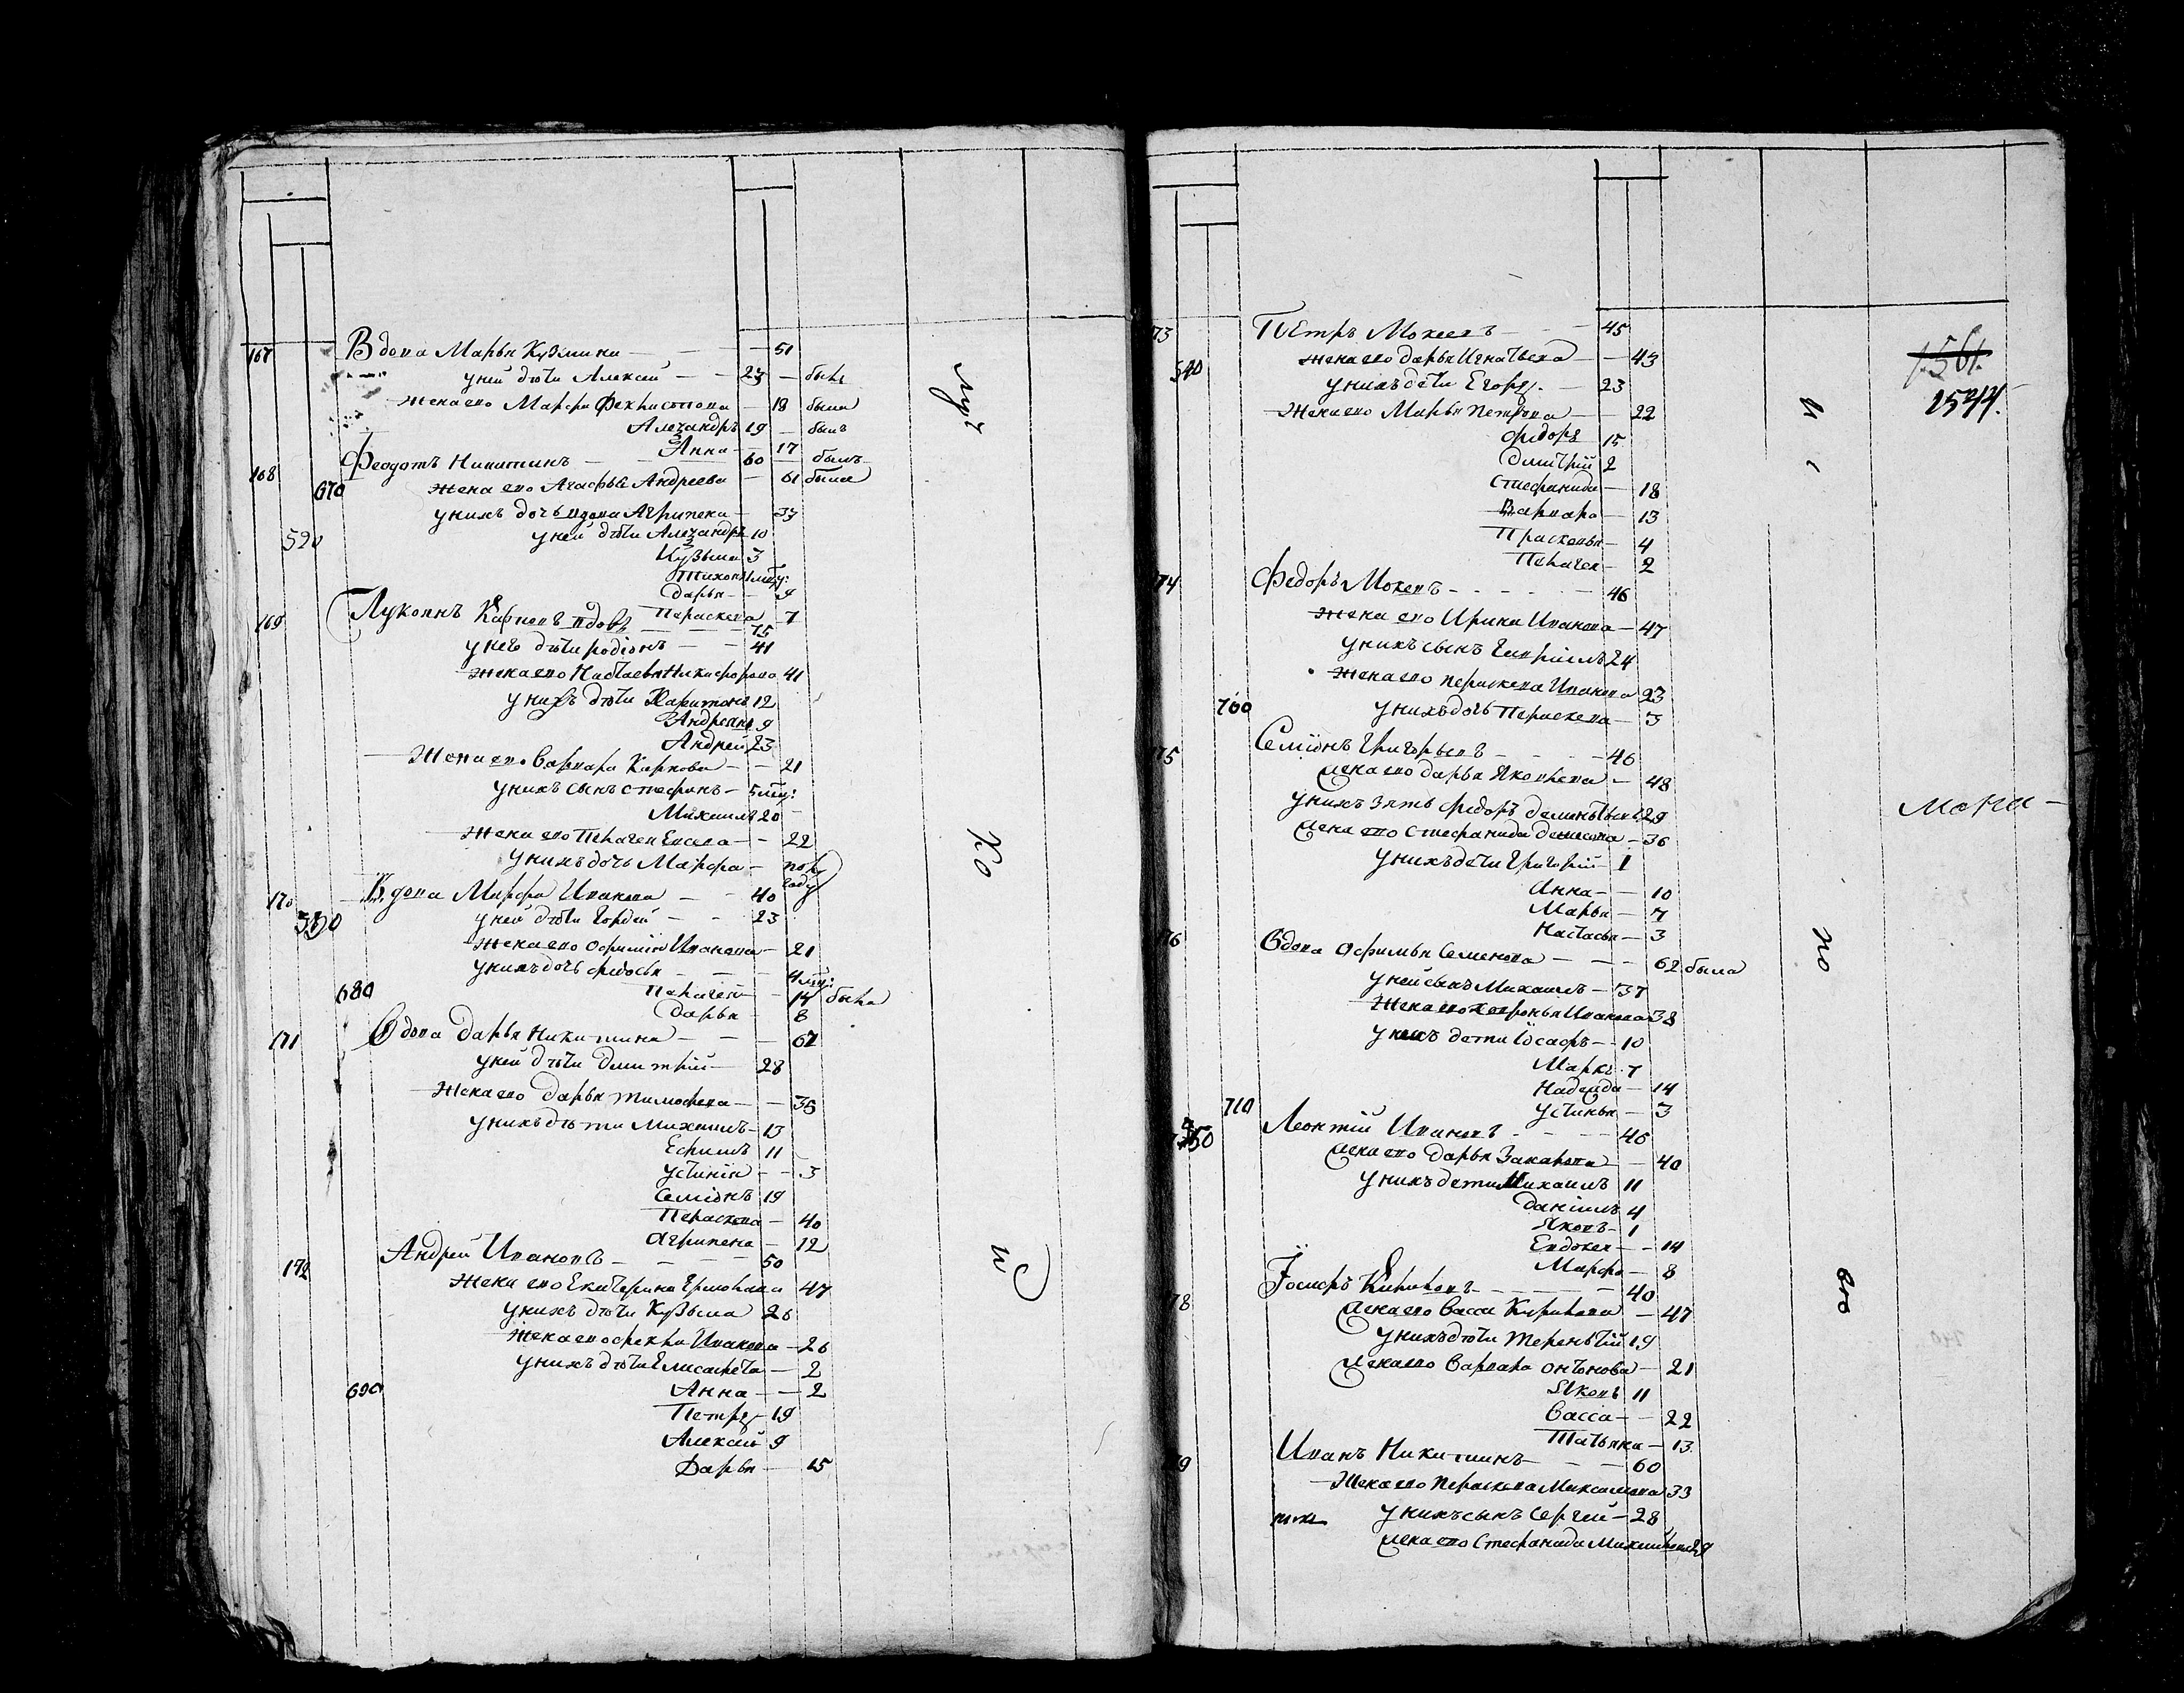 167 Вдова Марья Кузмина — 51
у ней дѣти Алексей — 23 — былъ
жена его Марфа Фехристова — 18 была
Алеѯандръ 19 — былъ
Анна — 17
168 Феодотъ Никитинъ — 60 былъ
670 жена его Агафья Андреева — 61 была
у нихъ дочь вдова Агрипена — 37
520 у ней дѣти Алеѯандръ 10
Кузьма 3
Тихонъ
Дарья — 9
Пераскева — 7
169 Лукоянъ Карповъ вдовъ — 75
у него дѣти Родіонъ — 41
жена его Настасья Никифорова 41
у нихъ дѣти Харитонъ 12
Андреянъ 9
Андрей 23
Жена его Варвара Карпова — 21
у нихъ сынъ Стефанъ — 5 мц:
Михаилъ 20
жена его Пелагея — 22
у нихъ дочь Марфа — полъ году
170 Вдова Марфа Иванова — 40
у ней дѣти Гордей — 23
жена его Офимія Иванова — 21
у нихъ дочь Федосья — 4 мц:
680 Пелагея — 14 была
Дарья — 8
171 Вдова Дарья Никитина — 67
у ней дѣти Димитрій — 28
жена его Дарья Тимофева — 36
у нихъ дѣти Михаилъ — 13
Ефимъ 11
Устинія — 3
Семіонъ 19
Пераскева — 40
Агрипена — 12
172 Андрей Ивановъ — 50
жена его Екатерина Ермолаева 47
у нихъ дѣти Кузьма 26
жена его Фекла Иванова — 26
у нихъ дѣти Елисавета — 2
690 Анна — 2
Петръ — 19
Алексей 9
Дарья — 15
муж
ко
и
73 Петръ Мокеевъ — 45
540 жена его Дарья Игнатьева — 43
у нихъ дѣти Егоръ — 23
жена его Марья Петрова — 22
Федоръ 15
Дмитрій 2
Стефанида — 18
Варвара — 13
Прасковья — 4
Пелагея — 2
74 Федоръ Мокевъ — 46
жена его Ирина Иванова — 47
у нихъ сынъ Гавріилъ 24
жена его Пераскева Иванова 23
700 у нихъ дочь Пераскева — 3
75 Семіонъ Григорьевъ — 46
жена его Дарья Яковлева — 48
у нихъ зять Федоръ Дементьевъ 29
жена его Стефанида — 36
у нихъ дѣти Григорій — 1
Анна — 10
Марья — 7
Настасья — 3
76 Вдова Офимья Семенова — 62 была
у ней сынъ Михаилъ — 37
жена его Иванова 38
у нихъ дети Іосафъ — 10
Марко 7
Надежда — 14
710 Устинья — 3
550 Леонтій Ивановъ — 45
жена его Дарья Захарова — 40
у нихъ дети Михаилъ 11
Даніилъ 4
Яковъ — 1
Евдокея — 14
Марфа — 8
78 Іосифъ Кириловъ — 40
жена его Васса Кирилова — 47
у нихъ дѣти Терентій 19
жена его Варвара Онтонова — 21
Яковъ 11
Васса — 22
Татьяна — 13
79 Иванъ Никитинъ — 60
жена его Пераскева Максимова 33
у нихъ сынъ Сергей — 28
жена его Стефанида
и
по
1561.
мона —